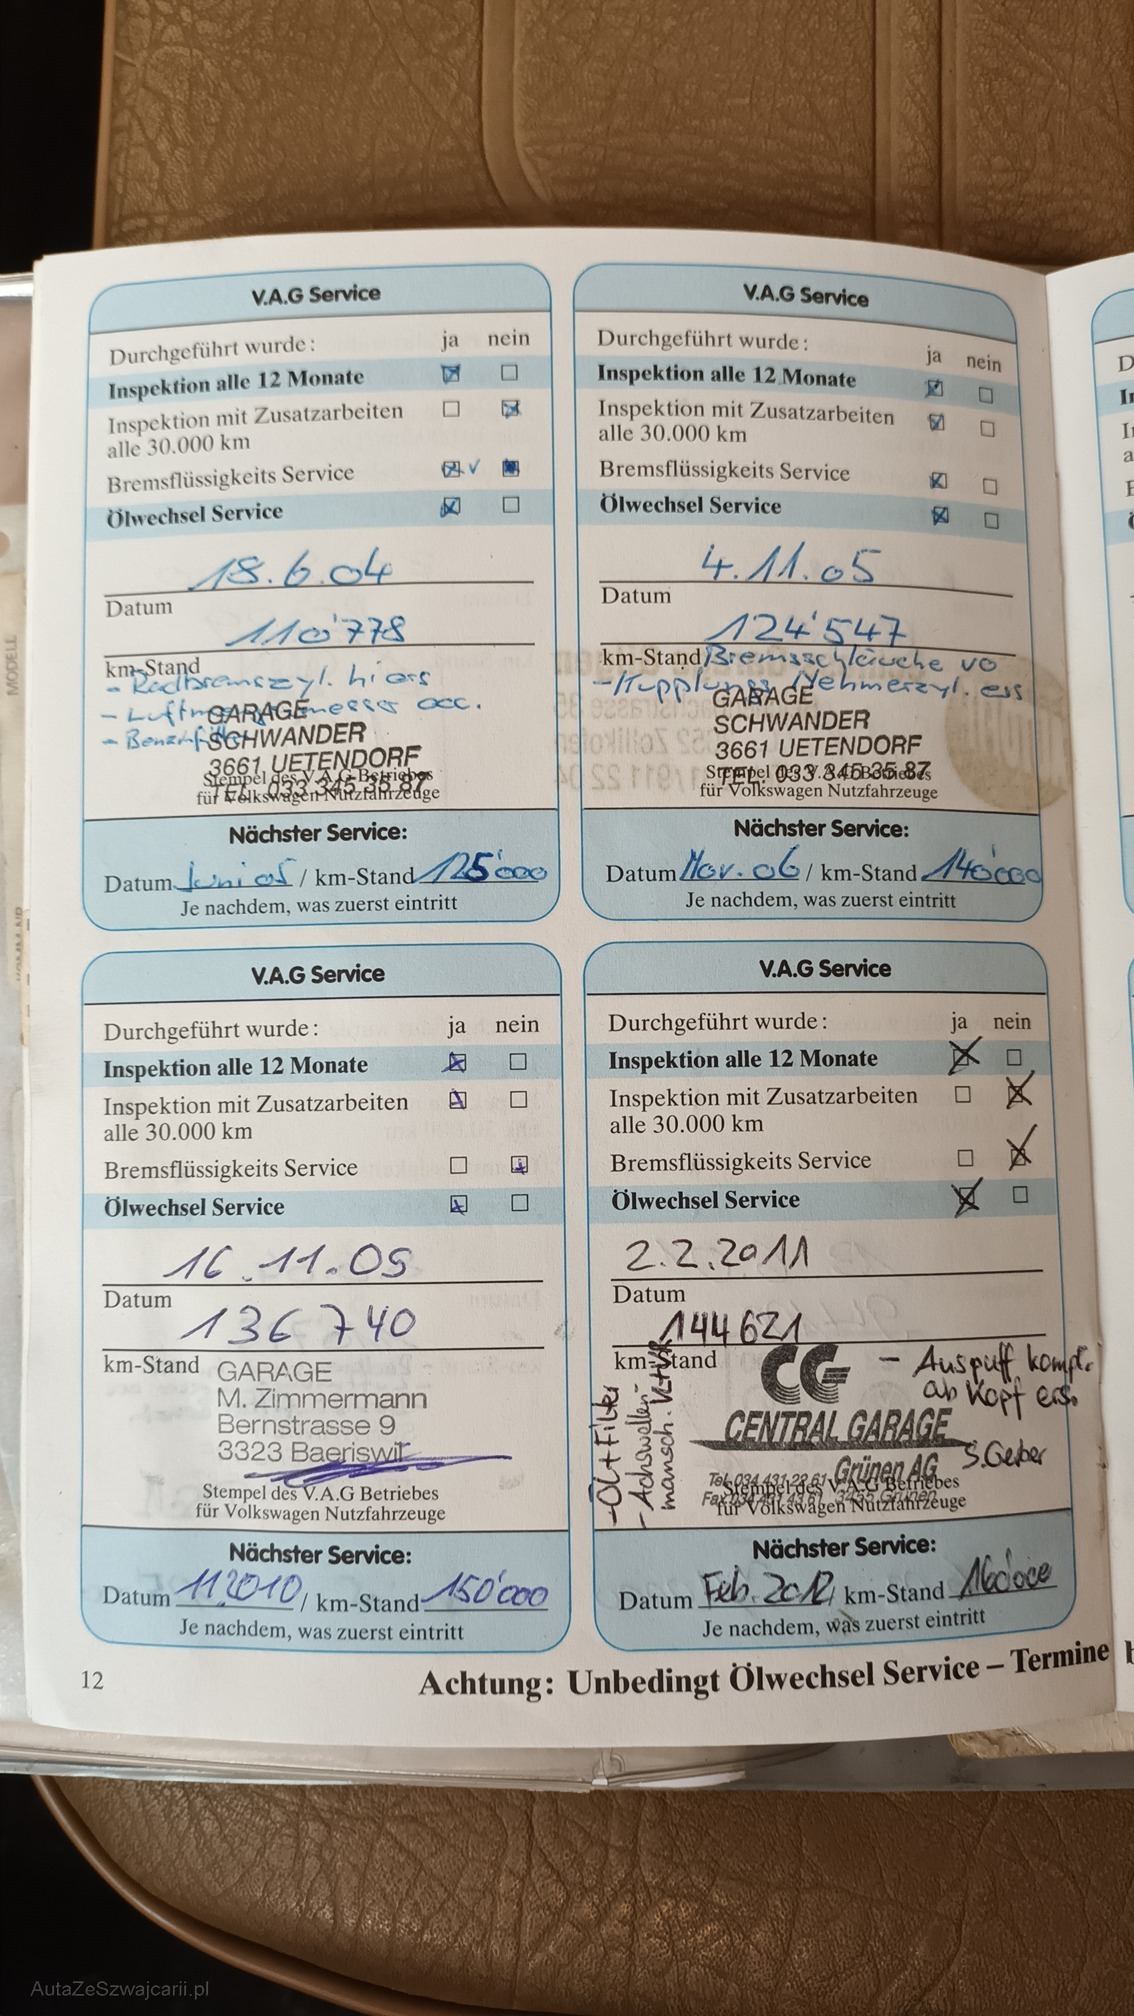 V.A.G Service
Durchgeführt wurde: ja nein
Inspektion alle 12 Monate
Inspektion mit Zusatzarbeiten
alle 30.000 km
Bremsflüssigkeits Service
Ölwechsel Service
18.6.04
Datum
110'778
km-Stand
- Radbremszyl. hi ers
- Luftmesser occ.
- Benzinfilter
GARAGE
SCHWANDER
3661 UETENDORF
TEL. 033 345 35 87
Stempel des V.A.G Betriebes
für Volkswagen Nutzfahrzeuge
Nächster Service:
Datum Juni 05 / km-Stand 125'000
Je nachdem, was zuerst eintritt
V.A.G Service
Durchgeführt wurde: ja nein
Inspektion alle 12 Monate
Inspektion mit Zusatzarbeiten
alle 30.000 km
Bremsflüssigkeits Service
Ölwechsel Service
4.11.05
Datum
124'547
km-Stand Bremsschläuche vo
- Kupplungs Nehmerzyl. ers
GARAGE
SCHWANDER
3661 UETENDORF
TEL. 033 345 35 87
Stempel des V.A.G Betriebes
für Volkswagen Nutzfahrzeuge
Nächster Service:
Datum Nov. 06 / km-Stand 140'000
Je nachdem, was zuerst eintritt
V.A.G Service
Durchgeführt wurde: ja nein
Inspektion alle 12 Monate
Inspektion mit Zusatzarbeiten
alle 30.000 km
Bremsflüssigkeits Service
Ölwechsel Service
16.11.09
Datum
136740
km-Stand
GARAGE
M. Zimmermann
Bernstrasse 9
3323 Baeriswil
Stempel des V.A.G Betriebes
für Volkswagen Nutzfahrzeuge
Nächster Service:
Datum 11.2010 / km-Stand 150'000
Je nachdem, was zuerst eintritt
V.A.G Service
Durchgeführt wurde: ja nein
Inspektion alle 12 Monate
Inspektion mit Zusatzarbeiten
alle 30.000 km
Bremsflüssigkeits Service
Ölwechsel Service
2.2.2011
Datum
144621
km-Stand
- Auspuff kompl.
ab Kopf ers.
- Öl + Filter
- Achswellen-
mansch.
CG
CENTRAL GARAGE
Grünen AG
S. Gerber
Tel. 034 431 22 61
3455 Grünen
Stempel des V.A.G Betriebes
für Volkswagen Nutzfahrzeuge
Nächster Service:
Datum Feb. 2012 / km-Stand 160'000
Je nachdem, was zuerst eintritt
12
Achtung: Unbedingt Ölwechsel Service – Termine
MODELL
AutaZeSzwajcarii.pl